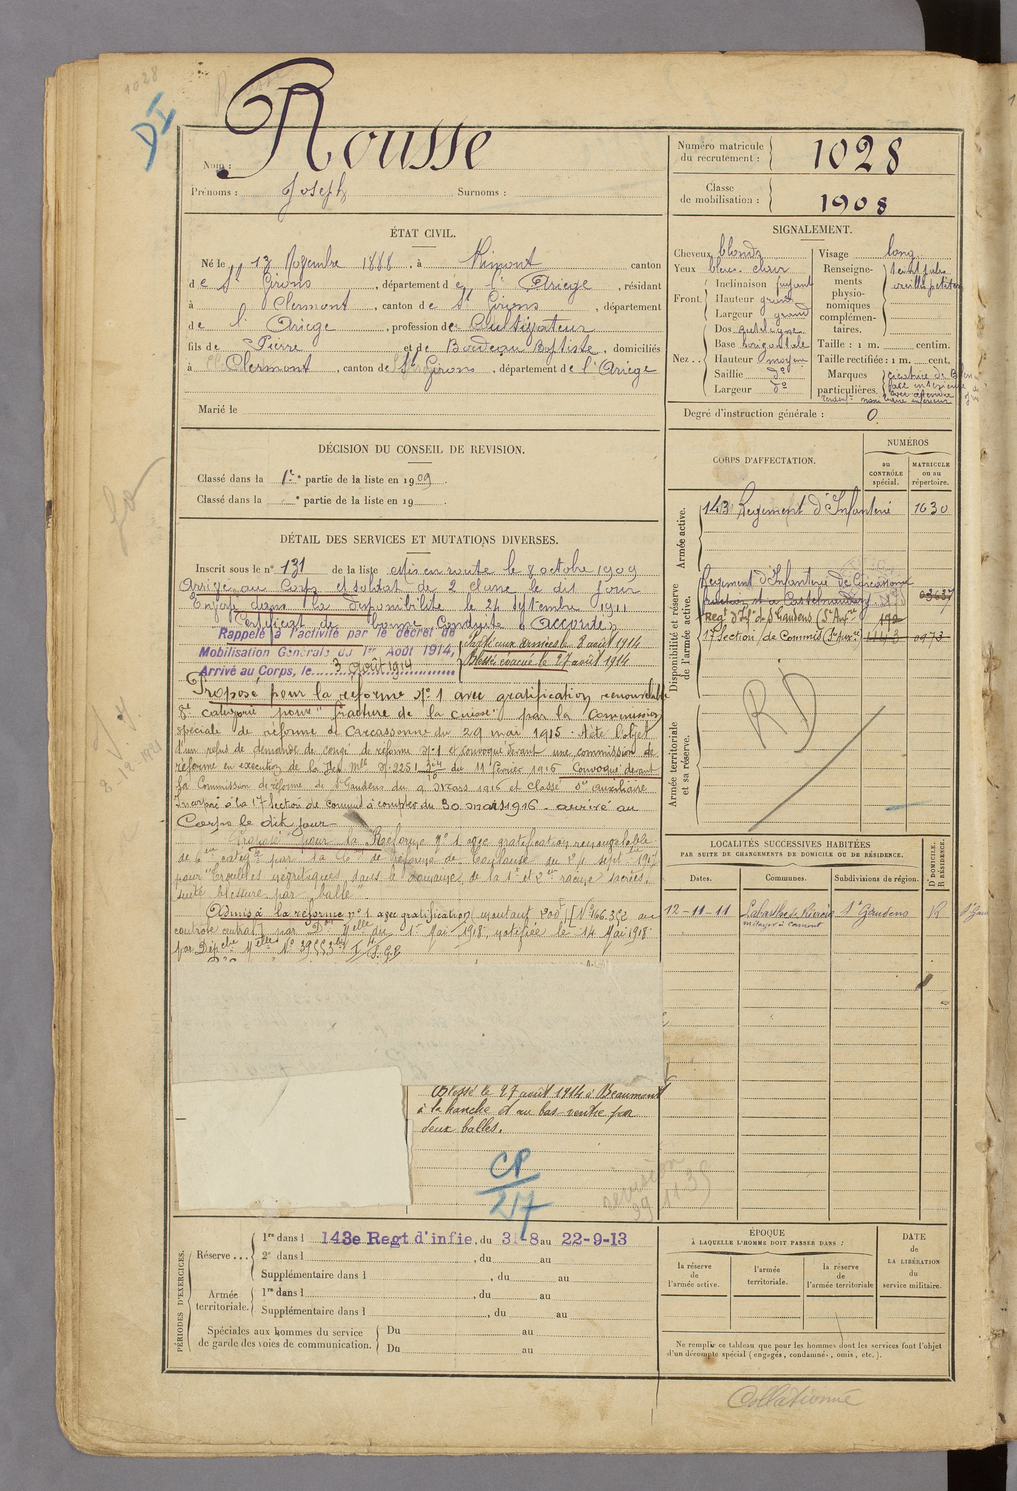 1028
DI
Nom : Rousse
Prénoms : Joseph Surnoms :
Numéro matricule du recrutement : 1028
Classe de mobilisation : 1908
ÉTAT CIVIL.
Né le 13 Novembre 1888, à Rimont canton
de St Girons, département de l'Ariège, résidant
à Clermont, canton de St Girons, département
de l'Ariège, profession de Cultivateur
fils de Pierre et de Bordeau Baptiste, domiciliés
à Clermont, canton de St Girons, département de l'Ariège
Marié le
SIGNALEMENT.
Cheveux blonds
Yeux bleu clair
Front. Inclinaison fuyant
Hauteur grand
Largeur grand
Nez... Dos
Base horizontale
Hauteur moyen
Saillie do
Largeur do
Visage long
Renseignements physionomiques complémentaires.
Taille : 1 m. centim.
Taille rectifiée : 1 m. cent.
Marques particulières. cicatrice de
Degré d'instruction générale : 0
DÉCISION DU CONSEIL DE REVISION.
Classé dans la 1re partie de la liste en 1909
Classé dans la e partie de la liste en 19
CORPS D'AFFECTATION.
NUMÉROS
au CONTRÔLE spécial.
MATRICULE ou au répertoire.
Armée active.
143 Regiment d'Infanterie 1630
Disponibilité et réserve de l'armée active.
Regiment d'Infanterie de Carcassonne
Regt d'Inf. de St Gaudens (Sce Auxre)
17 Section de Commis (Sce Auxre) 0973
Armée territoriale et sa réserve.
RD
DÉTAIL DES SERVICES ET MUTATIONS DIVERSES.
Inscrit sous le n° 131 de la liste Mis en route le 8 octobre 1909
Arrivé au Corps et soldat de 2 classe le dit jour
Envoyé dans la disponibilité le 24 septembre 1911
Certificat de bonne Conduite "Accordé"
Rappelé à l'activité par le décret de
Mobilisation Générale du 1er Août 1914,
Arrivé au Corps, le 3 août 1914
aux armées le 8 août 1914
Blessé évacué le 27 août 1914
Proposé pour la réforme N° 1 avec gratification renouvelable
8e catégorie pour "fracture de la cuisse" par la Commission
spéciale de réforme de Carcassonne du 29 mai 1915. A été l'objet
d'un refus de demande de congé de réforme N° 1 et convoqué devant une commission de
réforme en exécution de la Dep Mlle N° 2251 du 11 février 1916 Convoqué devant
la Commission de réforme de St Gaudens du 9 Mars 1916 et classé Sce auxiliaire
Incorporé à la 17 Section de Commis à compter du 30 mars 1916. arrivé au
Corps le dit jour
Proposé pour la Réforme N° 1 avec gratification renouvelable
de 6me catégie par la Con de réforme de Toulouse du 24 sept 1917
pour "Troubles névritiques, dans le domaine, de la 1e et 2me racine sacrées,
suite blessure par balle"
Admis à la réforme n° 1 avec gratification (montant 200f) [N° 166.352 au
contrôle central] par Don Mlle du 1er Mai 1918, notifiée le 14 Mai 1918
Blessé le 27 août 1914 à Beaumont
à la hanche et au bas-ventre par
deux balles.
CP
27
revision
29 11 35
LOCALITÉS SUCCESSIVES HABITÉES
PAR SUITE DE CHANGEMENTS DE DOMICILE OU DE RÉSIDENCE.
Dates. Communes. Subdivisions de région. D. DOMICILE. R. RÉSIDENCE.
12-11-11 Labastide de Sérou St Gaudens R
PÉRIODES D'EXERCICES.
Réserve... 1re dans l 143e Regt d'infie, du 31-8 au 22-9-13
2e dans l , du au
Supplémentaire dans l , du au
Armée territoriale. 1re dans l , du au
Supplémentaire dans l , du au
Spéciales aux hommes du service de garde des voies de communication. Du au
Du au
ÉPOQUE
À LAQUELLE L'HOMME DOIT PASSER DANS :
la réserve de l'armée active.
l'armée territoriale.
la réserve de l'armée territoriale
DATE de LA LIBÉRATION du service militaire.
Ne remplir ce tableau que pour les hommes dont les services font l'objet
d'un décompte spécial (engagés, condamnés, omis, etc.).
Collationné